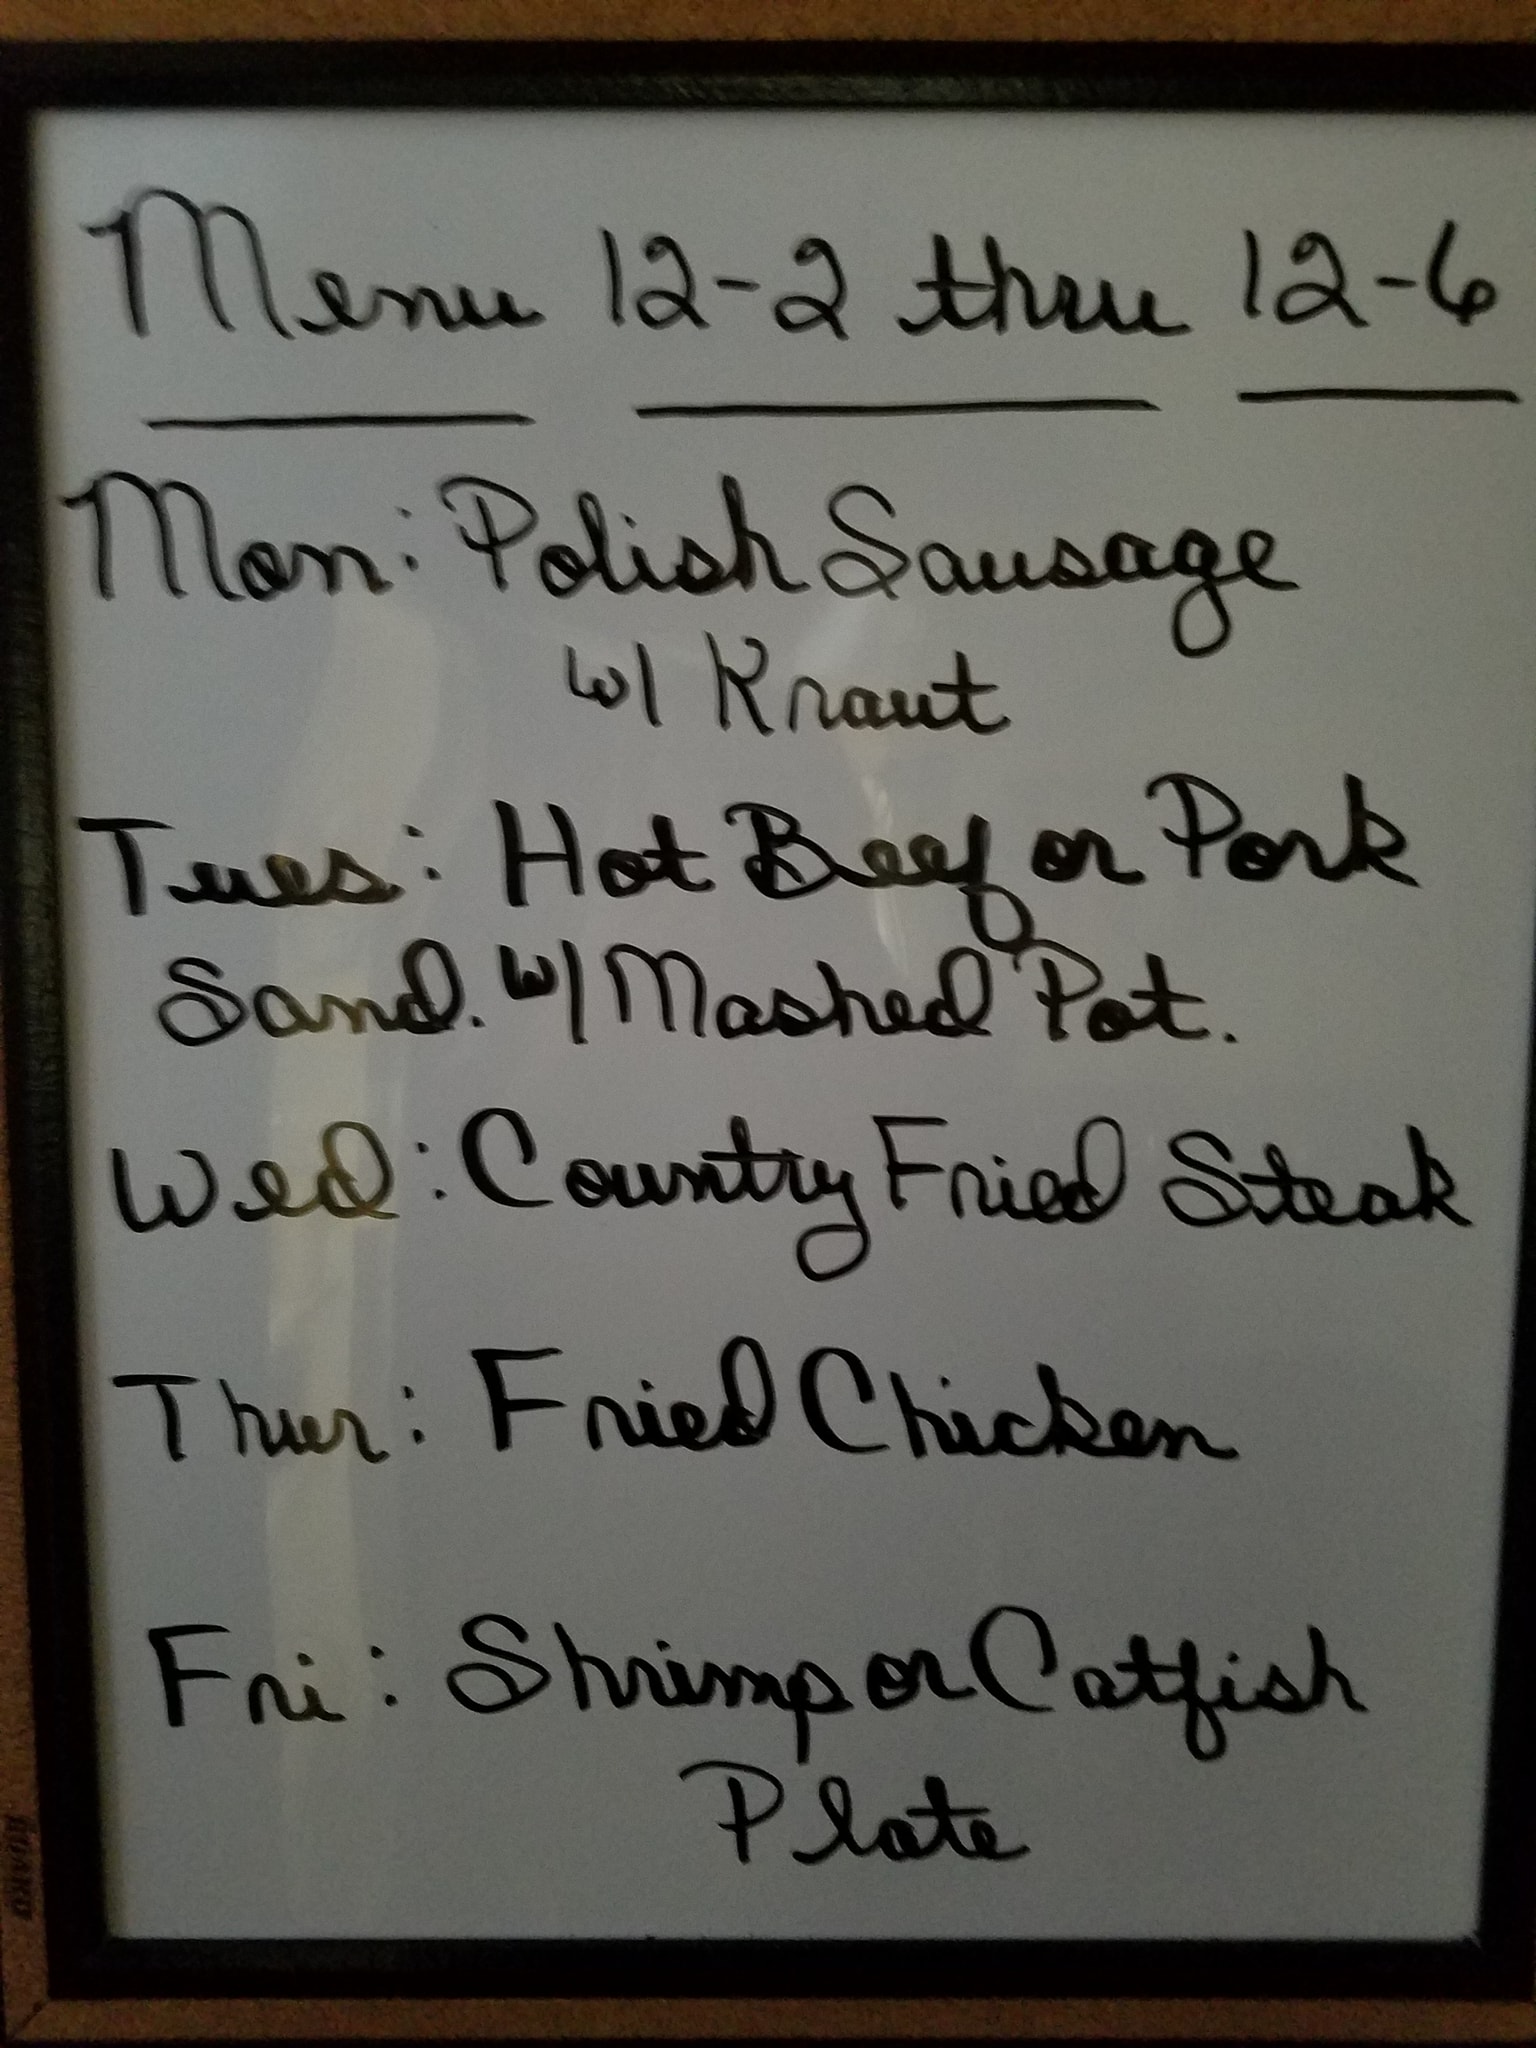 Menu 12-2 thru 12-6
Mon: Polish Sausage
w/ Kraut
Tues: Hot Beef or Pork
Sand. w/ Mashed Pot.
Wed: Country Fried Steak
Thur: Fried Chicken
Fri: Shrimp or Catfish
Plate